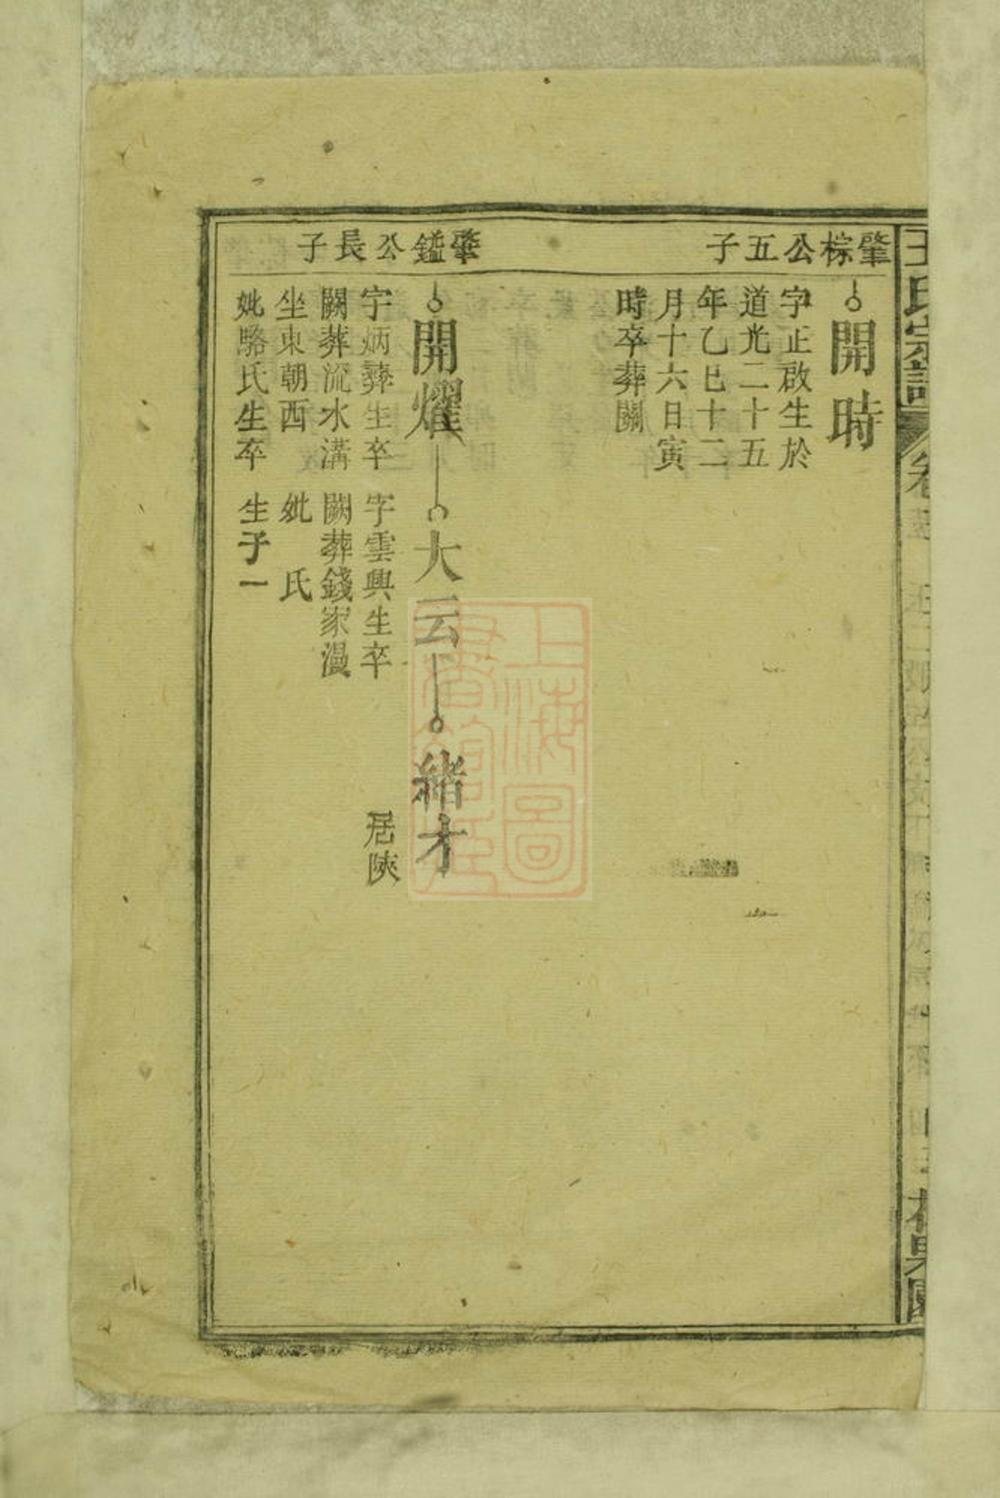 王氏宗譜
肇棕公五子
開時
字正啟生於
道光二十五
年乙巳十二
月十六日寅
時卒葬闕
肇鎰公長子
開燿
字炳彝生卒
闕葬流水溝
坐東朝西
妣駱氏生卒
大云
字雲興生卒
闕葬錢家漫
妣 氏
生子一
緒才
居陝
上海圖
書館藏